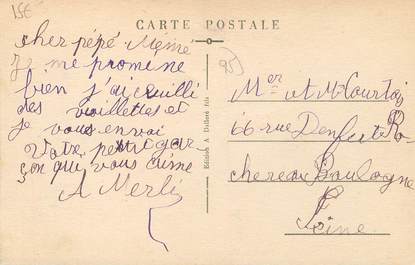 15€
CARTE POSTALE
cher pépé Mémé
Je me promène
bien j'ai cueilli
des voillettes et
je vous envoi
votre petit gar
çon qui vous aime
A Merli
Edition A. Dollero fils
95)
Mer et M Courtois
66 rue Denfert Ro
chereau Boulogne
Seine